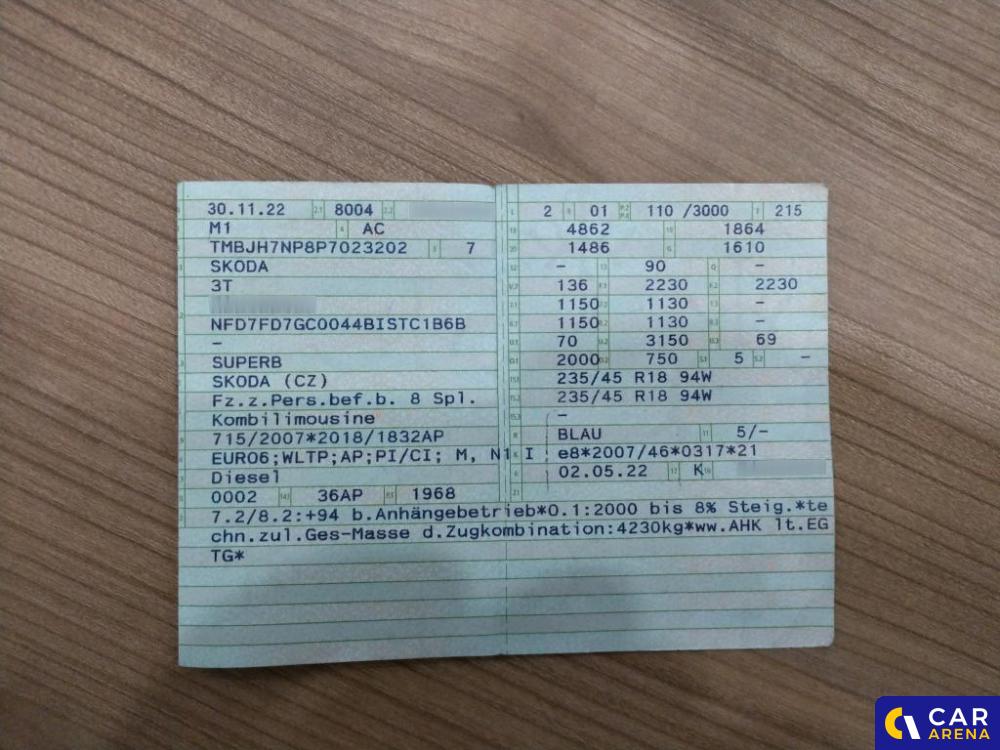 30.11.22 2.1 8004 2.2
M1 4 AC
TMBJH7NP8P7023202 3 7
SKODA
3T
NFD7FD7GC0044BISTC1B6B
–
SUPERB
SKODA (CZ)
Fz.z.Pers.bef.b. 8 Spl.
Kombilimousine
715/2007*2018/1832AP
EURO6;WLTP;AP;PI/CI; M, N1 I
Diesel
0002 14.1 36AP P.1 1968
L 2 9 01 P.2 P.4 110 /3000 T 215
18 4862 19 1864
20 1486 G 1610
12 – 13 90 Q –
V.7 136 F.1 2230 F.2 2230
7.1 1150 7.2 1130 7.3 –
8.1 1150 8.2 1130 8.3 –
U.1 70 U.2 3150 U.3 69
O.1 2000 O.2 750 S.1 5 S.2 –
15.1 235/45 R18 94W
15.2 235/45 R18 94W
15.3 –
R BLAU 11 5/–
K e8*2007/46*0317*21
6 02.05.22 17 K 16
21
7.2/8.2:+94 b.Anhängebetrieb*O.1:2000 bis 8% Steig.*te
chn.zul.Ges-Masse d.Zugkombination:4230kg*ww.AHK lt.EG
TG*
CAR
ARENA